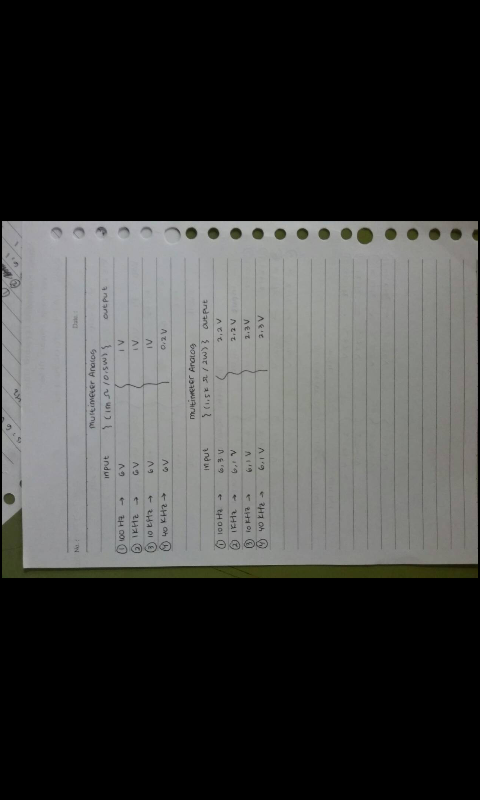 No:
Date:
Multimeter Analog
input } (1m Ω / 0.5W) } output
① 100 Hz → 6 V 1 V
② 1 KHz → 6 V 1 V
③ 10 KHz → 6 V 1 V
④ 40 KHz → 6 V 0.2 V
Multimeter Analog
input } (1.5k Ω / 2W) } output
① 100 Hz → 6.3 V 2.2 V
② 1 KHz → 6.1 V 2.2 V
③ 10 KHz → 6.1 V 2.3 V
④ 40 KHz → 6.1 V 2.3 V